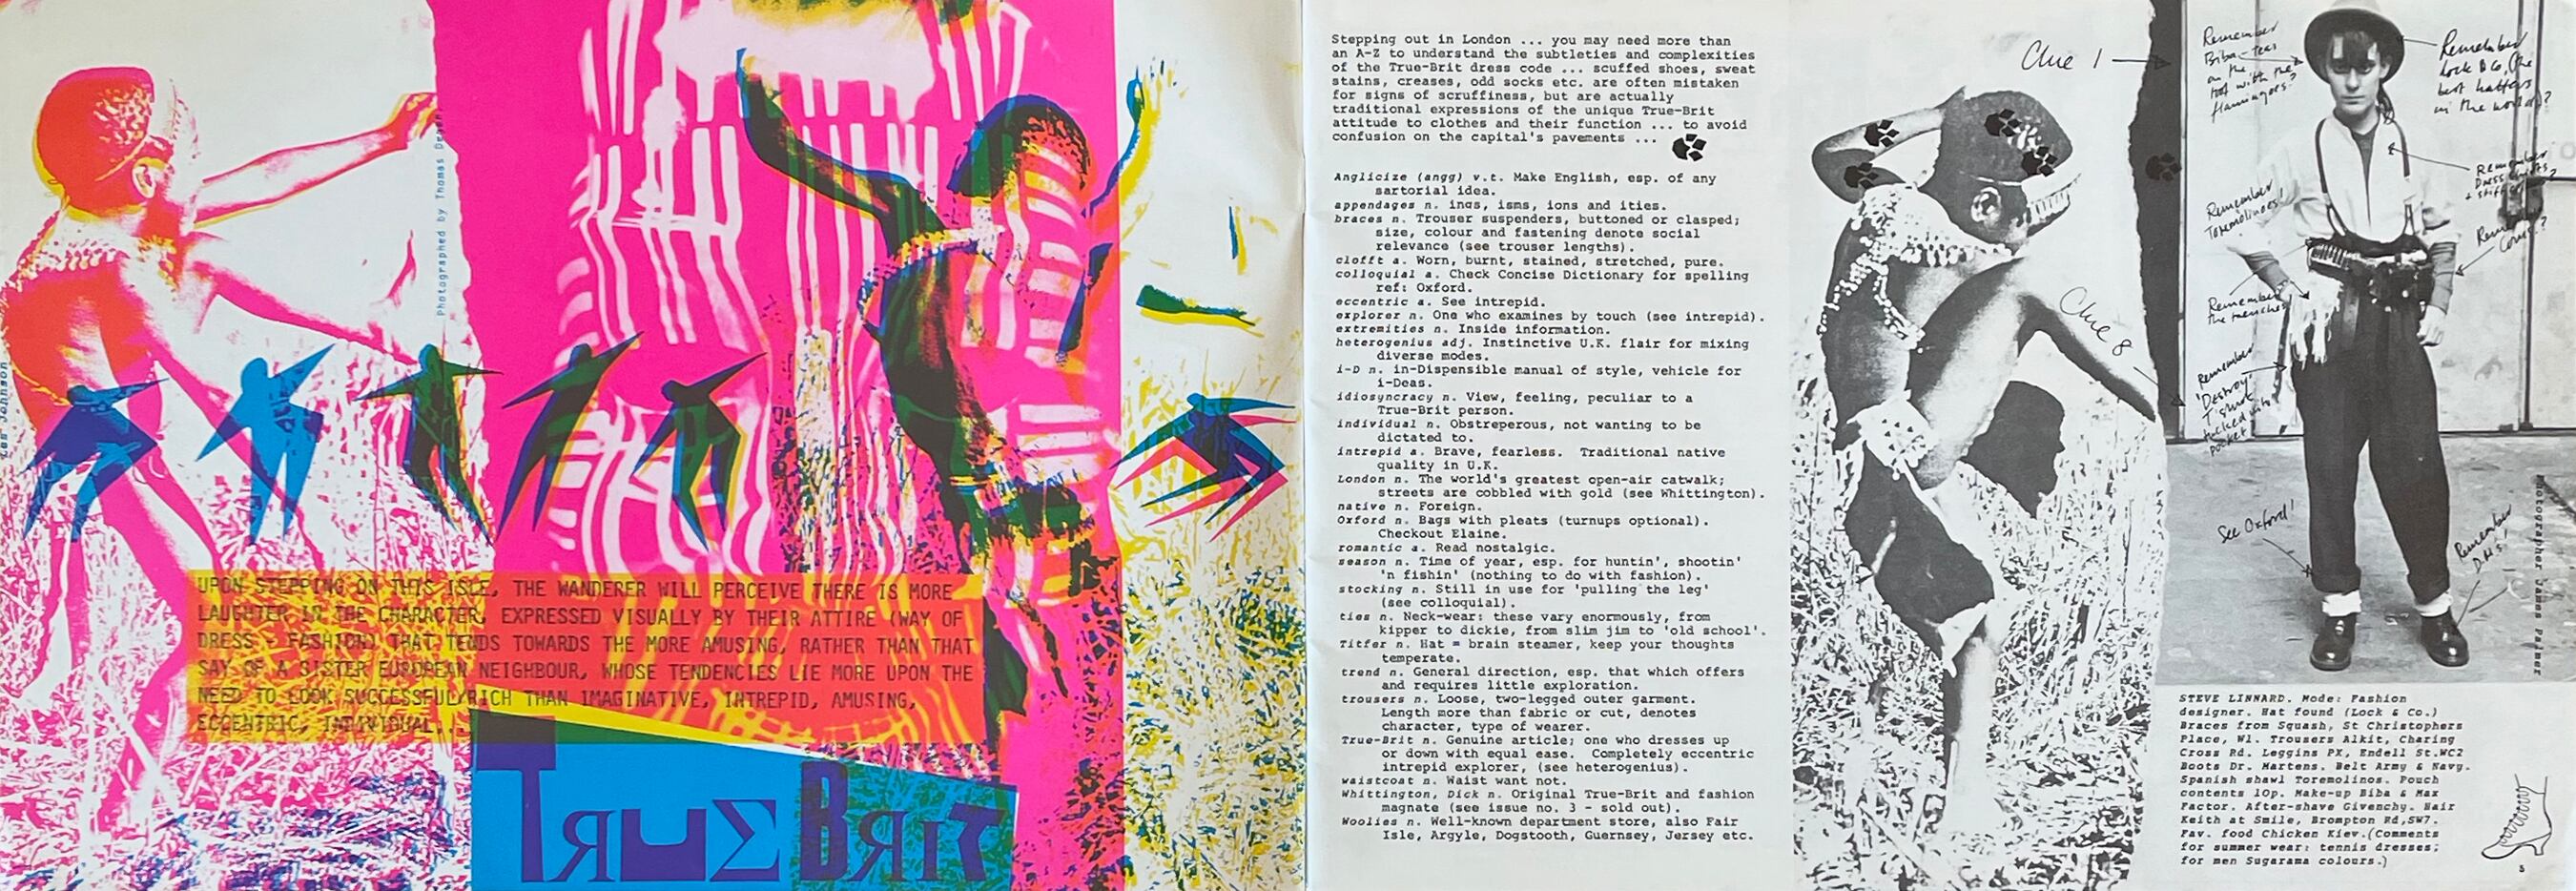 Photographed by Thomas
Johnson
UPON STEPPING ON THIS ISLE, THE WANDERER WILL PERCEIVE THERE IS MORE
LAUGHTER IN THE CHARACTER, EXPRESSED VISUALLY BY THEIR ATTIRE (WAY OF
DRESS - FASHION) THAT TENDS TOWARDS THE MORE AMUSING, RATHER THAN THAT
SAY OF A SISTER EUROPEAN NEIGHBOUR, WHOSE TENDENCIES LIE MORE UPON THE
NEED TO LOOK SUCCESSFUL/RICH THAN IMAGINATIVE, INTREPID, AMUSING,
ECCENTRIC, INDIVIDUAL...
TRUE BRIT
Stepping out in London ... you may need more than
an A-Z to understand the subtleties and complexities
of the True-Brit dress code ... scuffed shoes, sweat
stains, creases, odd socks etc. are often mistaken
for signs of scruffiness, but are actually
traditional expressions of the unique True-Brit
attitude to clothes and their function ... to avoid
confusion on the capital's pavements ...
Anglicize (angg) v.t. Make English, esp. of any
sartorial idea.
appendages n. ings, isms, ions and ities.
braces n. Trouser suspenders, buttoned or clasped;
size, colour and fastening denote social
relevance (see trouser lengths).
clofft a. Worn, burnt, stained, stretched, pure.
colloquial a. Check Concise Dictionary for spelling
ref: Oxford.
eccentric a. See intrepid.
explorer n. One who examines by touch (see intrepid).
extremities n. Inside information.
heterogenius adj. Instinctive U.K. flair for mixing
diverse modes.
i-D n. in-Dispensible manual of style, vehicle for
i-Deas.
idiosyncracy n. View, feeling, peculiar to a
True-Brit person.
individual n. Obstreperous, not wanting to be
dictated to.
intrepid a. Brave, fearless. Traditional native
quality in U.K.
London n. The world's greatest open-air catwalk;
streets are cobbled with gold (see Whittington).
native n. Foreign.
Oxford n. Bags with pleats (turnups optional).
Checkout Elaine.
romantic a. Read nostalgic.
season n. Time of year, esp. for huntin', shootin'
'n fishin' (nothing to do with fashion).
stocking n. Still in use for 'pulling the leg'
(see colloquial).
ties n. Neck-wear: these vary enormously, from
kipper to dickie, from slim jim to 'old school'.
Titfer n. Hat = brain steamer, keep your thoughts
temperate.
trend n. General direction, esp. that which offers
and requires little exploration.
trousers n. Loose, two-legged outer garment.
Length more than fabric or cut, denotes
character, type of wearer.
True-Brit n. Genuine article; one who dresses up
or down with equal ease. Completely eccentric
intrepid explorer, (see heterogenius).
waistcoat n. Waist want not.
Whittington, Dick n. Original True-Brit and fashion
magnate (see issue no. 3 - sold out).
Woolies n. Well-known department store, also Fair
Isle, Argyle, Dogstooth, Guernsey, Jersey etc.
Clue 1
Clue 8
Remember
Biba - teas
on the
roof with the
flamingoes?
Remember
Lock & Co, (the
best hatters
in the world)?
Remember
Dress shirts
+ stiff
Remember
Toremolinoes!
Remember
the trenches!
Remember
'Destroy'
T shirt
tucked into
pocket
See Oxford!
Remember
D.M.s!
Photographer James Palmer
STEVE LINNARD. Mode: Fashion
designer. Hat found (Lock & Co.)
Braces from Squash, St Christophers
Place, W1. Trousers Alkit, Charing
Cross Rd. Leggins PX, Endell St.WC2
Boots Dr. Martens. Belt Army & Navy.
Spanish shawl Toremolinos. Pouch
contents 10p. Make-up Biba & Max
Factor. After-shave Givenchy. Hair
Keith at Smile, Brompton Rd,SW7.
Fav. food Chicken Kiev.(Comments
for summer wear: tennis dresses;
for men Sugarama colours.)
5